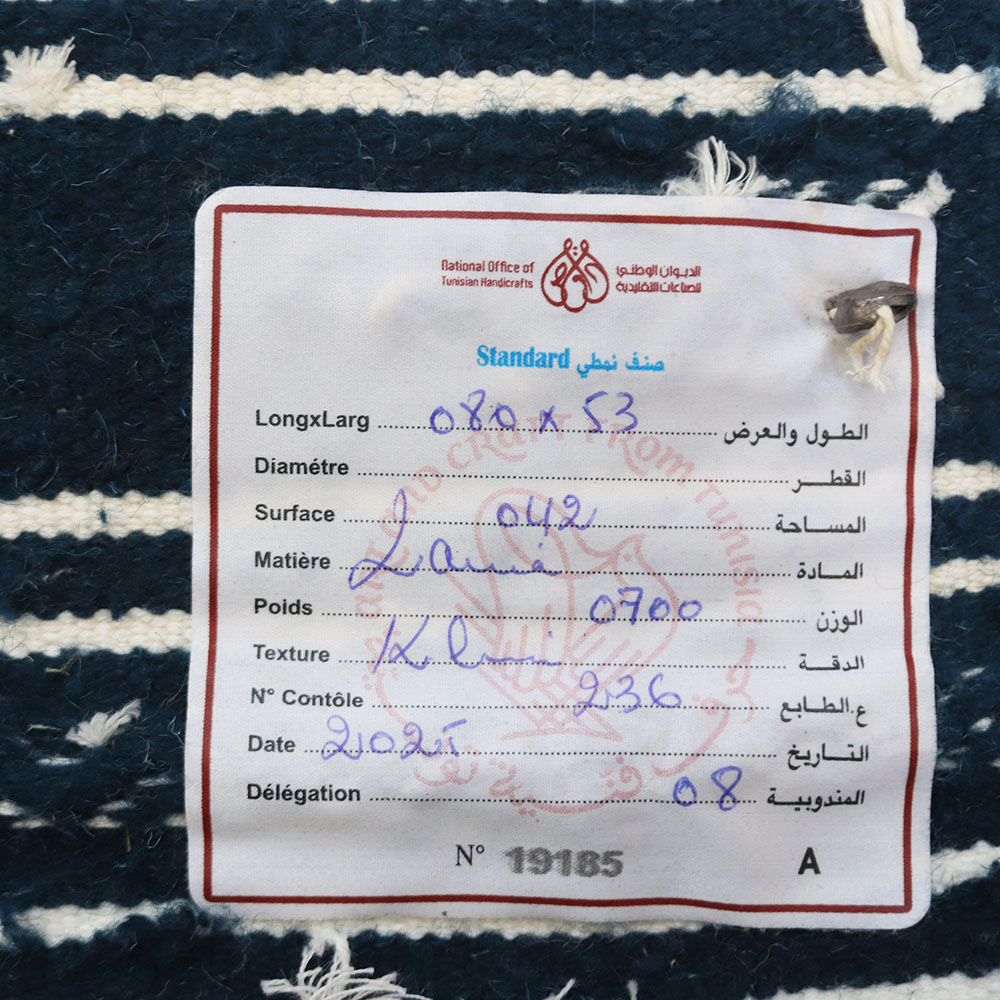 National Office of
Tunisian Handicrafts
الديوان الوطني
للصناعات التقليدية
Standard صنف نمطي
LongxLarg 080 x 53 الطول والعرض
Diamétre القطر
Surface 042 المساحة
Matière المادة
Poids 0700 الوزن
Texture الدقة
N° Contôle 236 ع.الطابع
Date التاريخ
Délégation 08 المندوبية
N° 19185 A
ART AND CRAFT FROM TUNISIA